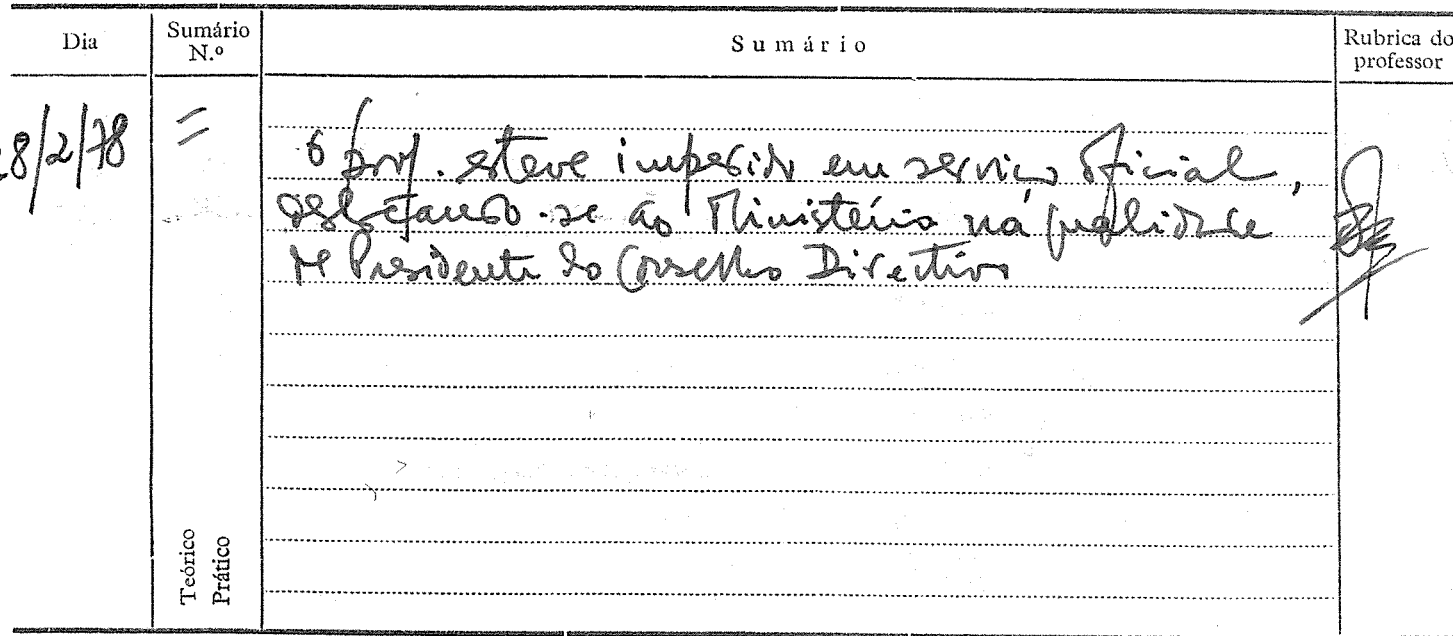 Dia
Sumário N.º
Sumário
Rubrica do professor
28/2/78
=
O prof. esteve impedido em serviço oficial,
deslocando-se ao Ministério na qualidade
de Presidente do Conselho Directivo
Teórico
Prático